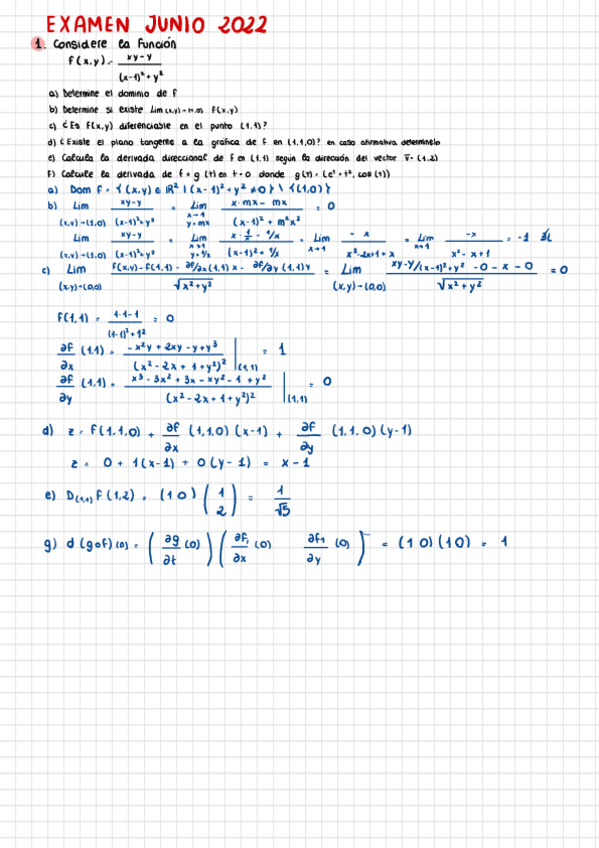 EXAMEN JUNIO 2022
1. Considere la función
f(x,y) = xy-y / (x-1)²+y²
a) Determine el dominio de f
b) Determine si existe Lim (x,y)→(1,0) f(x,y)
c) ¿Es f(x,y) diferenciable en el punto (1,1)?
d) ¿Existe el plano tangente a la gráfica de f en (1,1,0)? en caso afirmativo determínelo
e) Calcula la derivada direccional de f en (1,1) según la dirección del vector v = (1,2)
f) Calcule la derivada de f∘g (t) en t=0 donde g(t) = (eᵗ+t³, cos(t))
a) Dom f = {(x,y) ∈ ℝ² | (x-1)²+y² ≠ 0} \ {(1,0)}
b) Lim (x,y)→(1,0) xy-y / (x-1)²+y² = Lim x→1 y=mx x·mx-mx / (x-1)²+m²x² = 0
Lim (x,y)→(1,0) xy-y / (x-1)²+y² = Lim x→1 y=1/x x·1/x - 1/x / (x-1)²+1/x = Lim x→1 -x / x²-2x+1+x = Lim x→1 -x / x²-x+1 = -1 ∄L
c) Lim (x,y)→(0,0) f(x,y)-f(1,1)-∂f/∂x(1,1)x-∂f/∂y(1,1)y / √x²+y² = Lim (x,y)→(0,0) xy-y/(x-1)²+y² -0-x-0 / √x²+y² = 0
f(1,1) = 1·1-1 / (1-1)²+1² = 0
∂f/∂x (1,1) = -x²y+2xy-y+y³ / (x²-2x+1+y²)² |(1,1) = 1
∂f/∂y (1,1) = x³-3x²+3x-xy²-1+y² / (x²-2x+1+y²)² |(1,1) = 0
d) z = f(1,1,0) + ∂f/∂x (1,1,0)(x-1) + ∂f/∂y (1,1,0)(y-1)
z = 0+1(x-1)+0(y-1) = x-1
e) D(1,1) f(1,2) = (1 0) (1 2) = 1/√5
g) d(g∘f)(0) = (∂g/∂t (0)) (∂f₁/∂x (0) ∂f₁/∂y (0))ᵀ = (1 0)(1 0) = 1